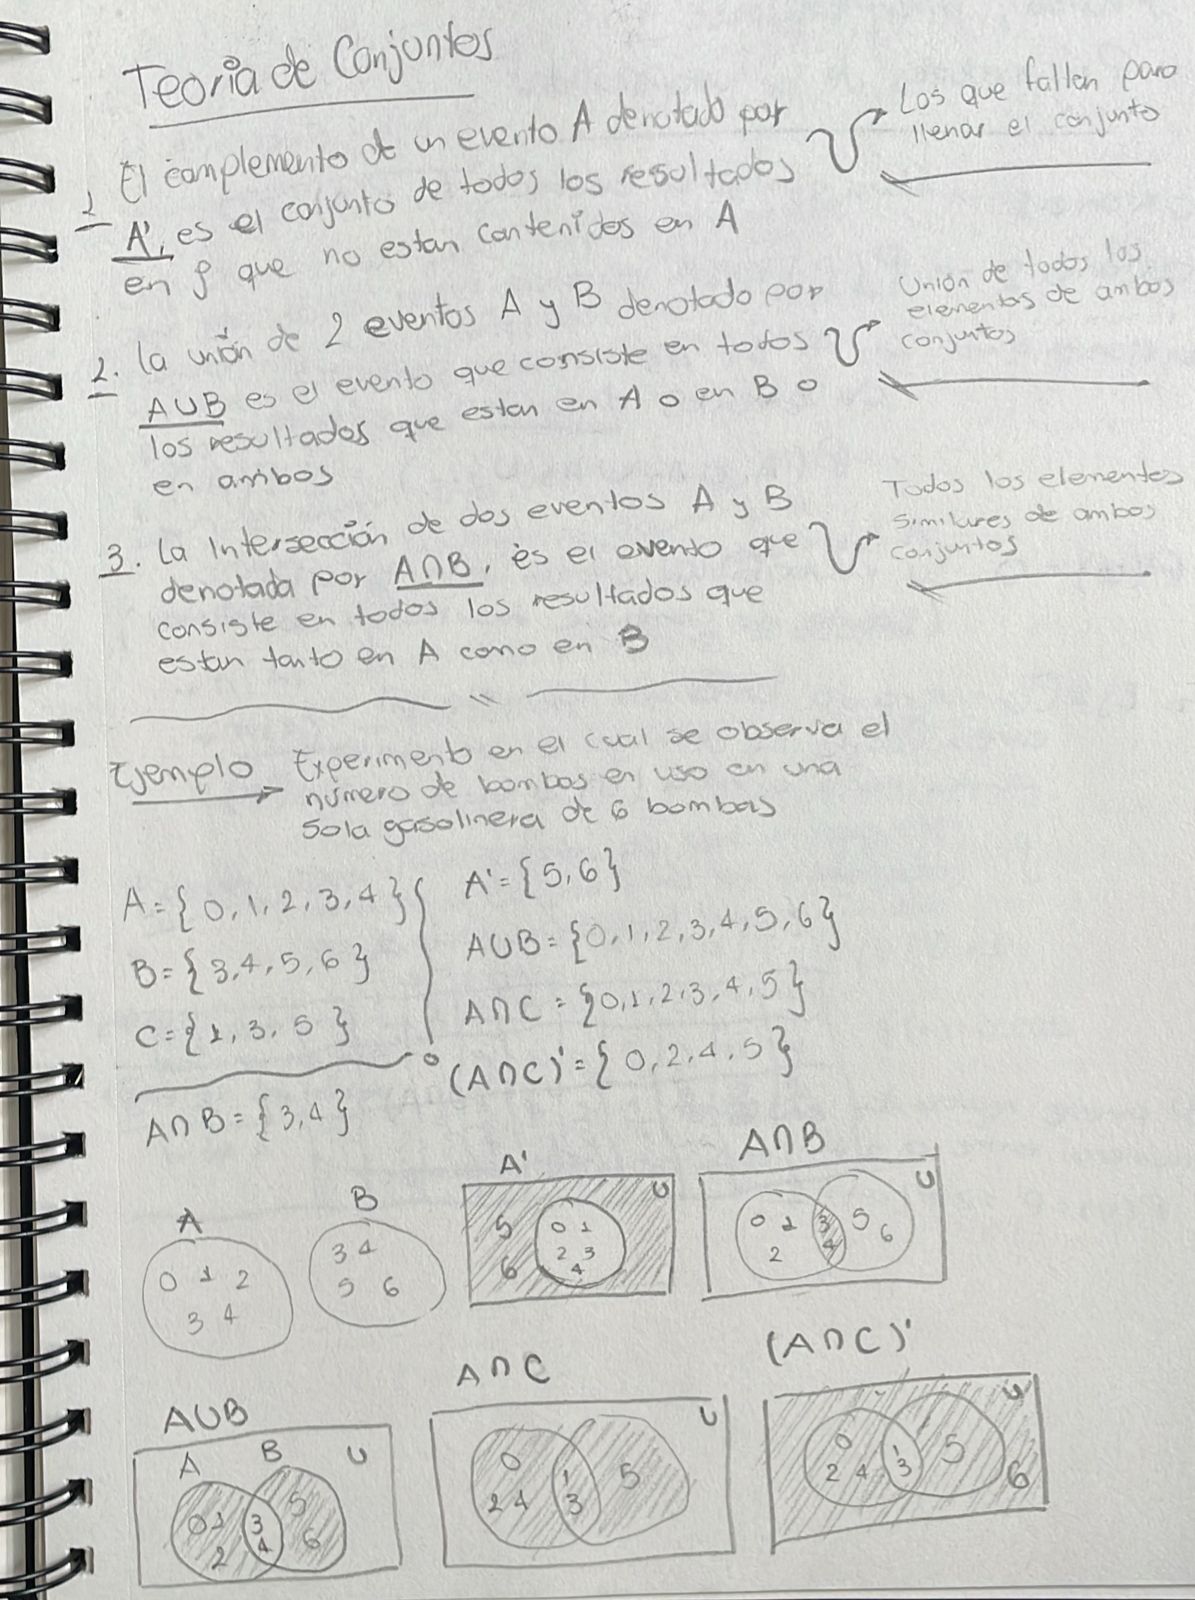 Teoria de Conjuntos
1 El complemento de un evento A denotado por
A', es el conjunto de todos los resultados
en ρ que no estan contenidos en A
Los que falten para
llenar el conjunto
2. La unión de 2 eventos A y B denotado por
AUB es el evento que consiste en todos
los resultados que estan en A o en B o
en ambos
Unión de todos los
elementos de ambos
conjuntos
3. La Intersección de dos eventos A y B
denotada por A∩B, es el evento que
consiste en todos los resultados que
estan tanto en A como en B
Todos los elementos
similares de ambos
conjuntos
Ejemplo → Experimento en el cual se observa el
número de bombas en uso en una
sola gasolinera de 6 bombas
A={0,1,2,3,4}
B={3,4,5,6}
C={1,3,5}
A∩B={3,4}
A'={5,6}
AUB={0,1,2,3,4,5,6}
A∩C={0,1,2,3,4,5}
(A∩C)'={0,2,4,5}
A
0 1 2
3 4
B
3 4
5 6
A'
U
5
6
0 1
2 3
4
A∩B
U
0 1
2
3
4
5
6
AUB
A B U
0 1
2
3
4
5
6
A∩C
U
0
2 4
1
3
5
(A∩C)'
U
0
2 4
1
3
5
6